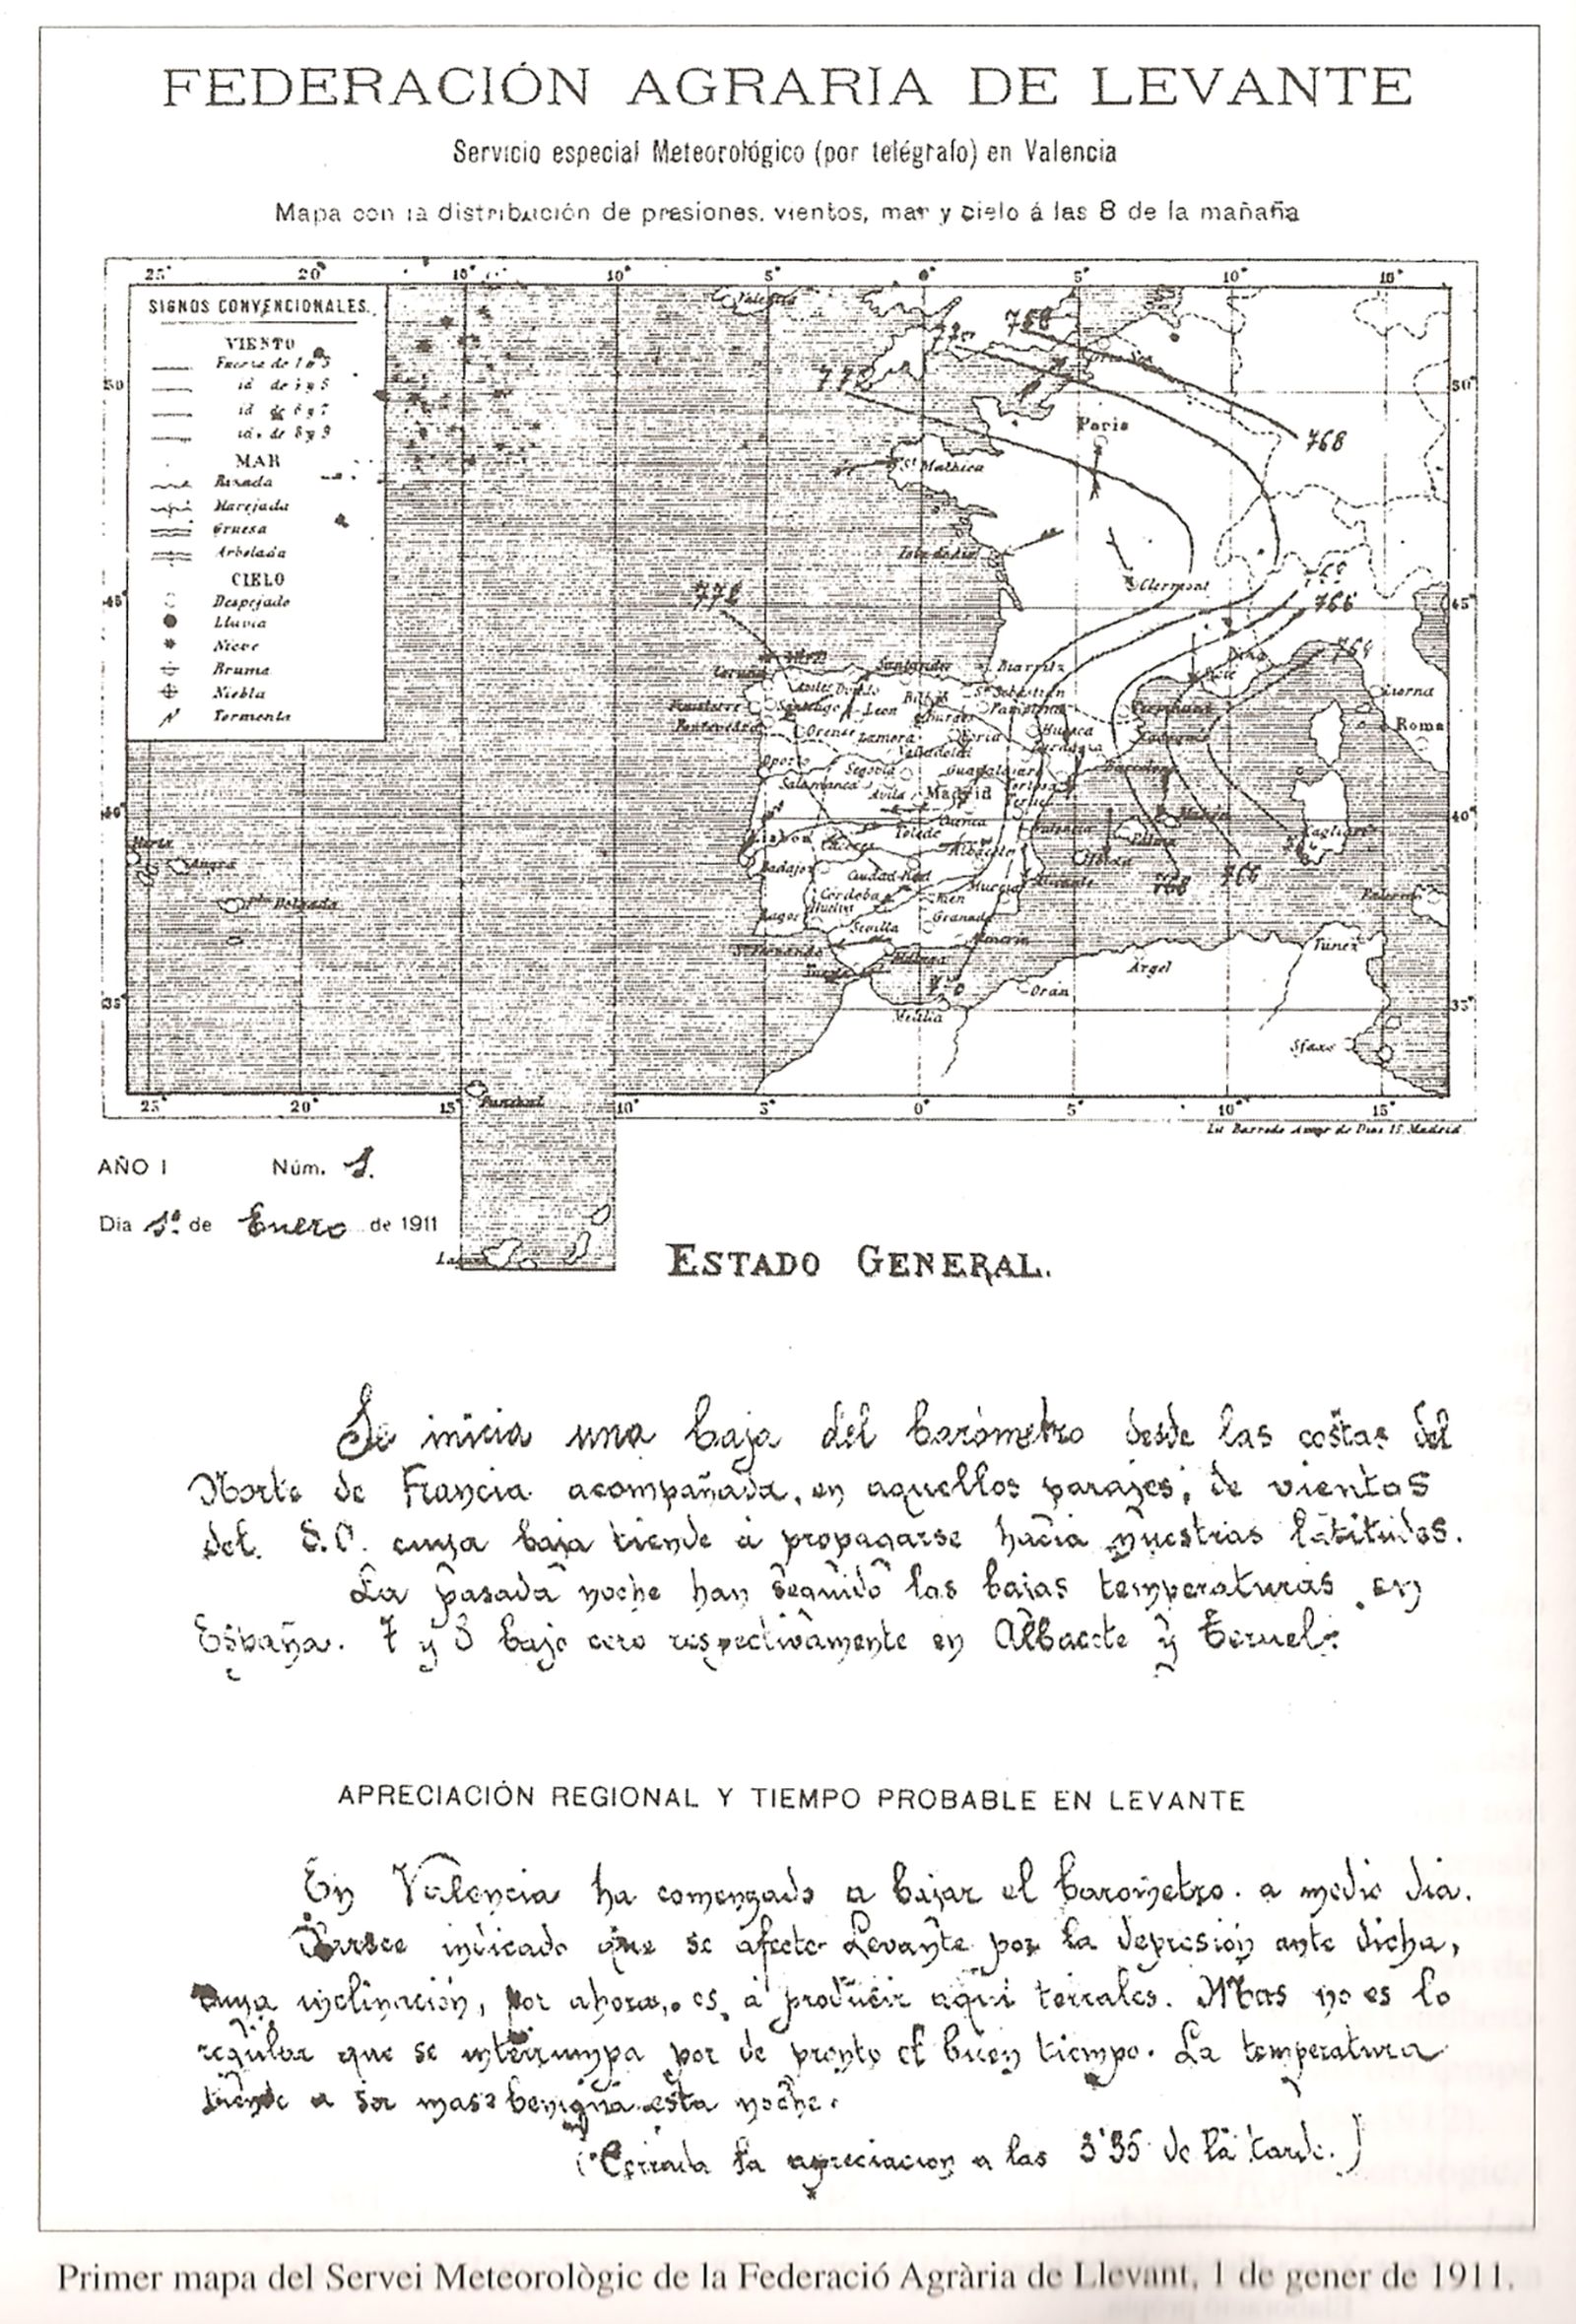 FEDERACIÓN AGRARIA DE LEVANTE
Servicio especial Meteorológico (por telégrafo) en Valencia
Mapa con la distribución de presiones, vientos, mar y cielo á las 8 de la mañaña
25° 20° 15° 10° 5° 0° 5° 10° 15°
SIGNOS CONVENCIONALES.
VIENTO
Fuerza de 1 a 3
id de 6 y 7
id. de 8 y 9
MAR
Rizada
Marejada
Gruesa
Arbolada
CIELO
Despejado
Lluvia
Nieve
Bruma
Niebla
Tormenta
50° 50°
45° 45°
40° 40°
35° 35°
Valentia
768
772
768
Paris
St Mathieu
Clermont
772
766
764
Niza
Coruña
Santander
Biarritz
Bilbao
Sn Sebastián
Santiago
Leon
Burgos
Pamplona
Pontevedra
Orense
Zamora
Soria
Huesca
Valladolid
Liorna
Roma
Oporto
Segovia
Guadalajara
Barcelona
Salamanca
Avila
Madrid
Teruel
Cuenca
Toledo
Valencia
Palma
Mahón
Cagliari
Lisboa
Cáceres
Albacete
Badajoz
Ciudad-Real
Murcia
Alicante
768
766
Horta
Angra
Pta Delgada
Córdoba
Jaén
Palermo
Lagos
Huelva
Sevilla
Granada
Sn Fernando
Málaga
Almería
Argel
Túnez
Orán
Melilla
Sfax
Funchal
25° 20° 15° 10° 5° 0° 5° 10° 15°
Madrid.
AÑO I Núm. 1.
Dia 1º de Enero de 1911
ESTADO GENERAL.
Se inicia una baja del barómetro desde las costas del
Norte de Francia acompañada, en aquellos parajes, de vientos
del S.O. cuya baja tiende á propagarse hacia nuestras latitudes.
La pasada noche han seguido las bajas temperaturas en
España. 7 y 8 bajo cero respectivamente en Albacete y Teruel.
APRECIACIÓN REGIONAL Y TIEMPO PROBABLE EN LEVANTE
En Valencia ha comenzado a bajar el barometro a medio dia.
Parece indicado que se afecte Levante por la depresión ante dicha,
cuya inclinación, por ahora, es á producir aqui terrales. Mas no es lo
regular que se interrumpa por de pronto el buen tiempo. La temperatura
tiende a ser mas benigna esta noche.
(Cerrada la apreciacion a las 3'35 de la tarde.)
Primer mapa del Servei Meteorològic de la Federació Agrària de Llevant, 1 de gener de 1911.